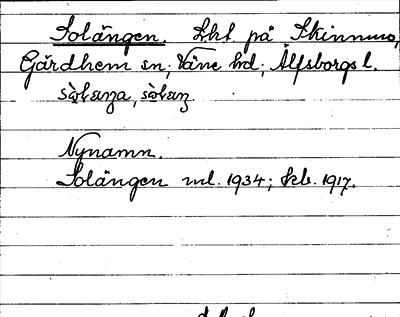 Solängen. Lht på Skinnmo,
Gärdhem sn; Väne hd; Älfsborgs l.
Nynamn.
Solängen ml. 1934; skb. 1917.